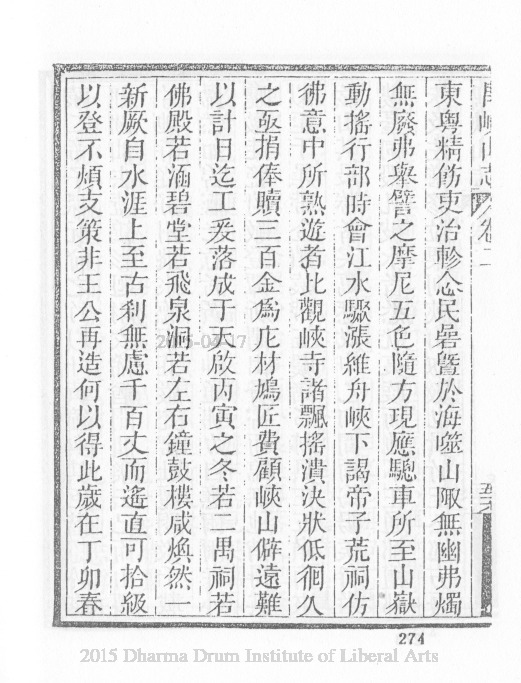 禺峽山志 卷二
東粵精飭吏治軫念民碞曁於海噬山陬無幽弗燭
無廢弗舉譬之摩尼五色隨方現應驄車所至山嶽
動搖行部時會江水驟漲維舟峽下謁帝子荒祠仿
彿意中所熟遊者比觀峽寺諸飄搖潰決狀低徊久
之亟捐俸贖三百金爲庀材鳩匠費顧峽山僻遠難
以計日迄工爰落成于天啟丙寅之冬若二禺祠若
佛殿若涵碧堂若飛泉洞若左右鐘鼓樓咸煥然一
新厥自水涯上至古刹無慮千百丈而遙直可拾級
以登不煩支策非王公再造何以得此歲在丁卯春
2015-04-17
274
2015 Dharma Drum Institute of Liberal Arts